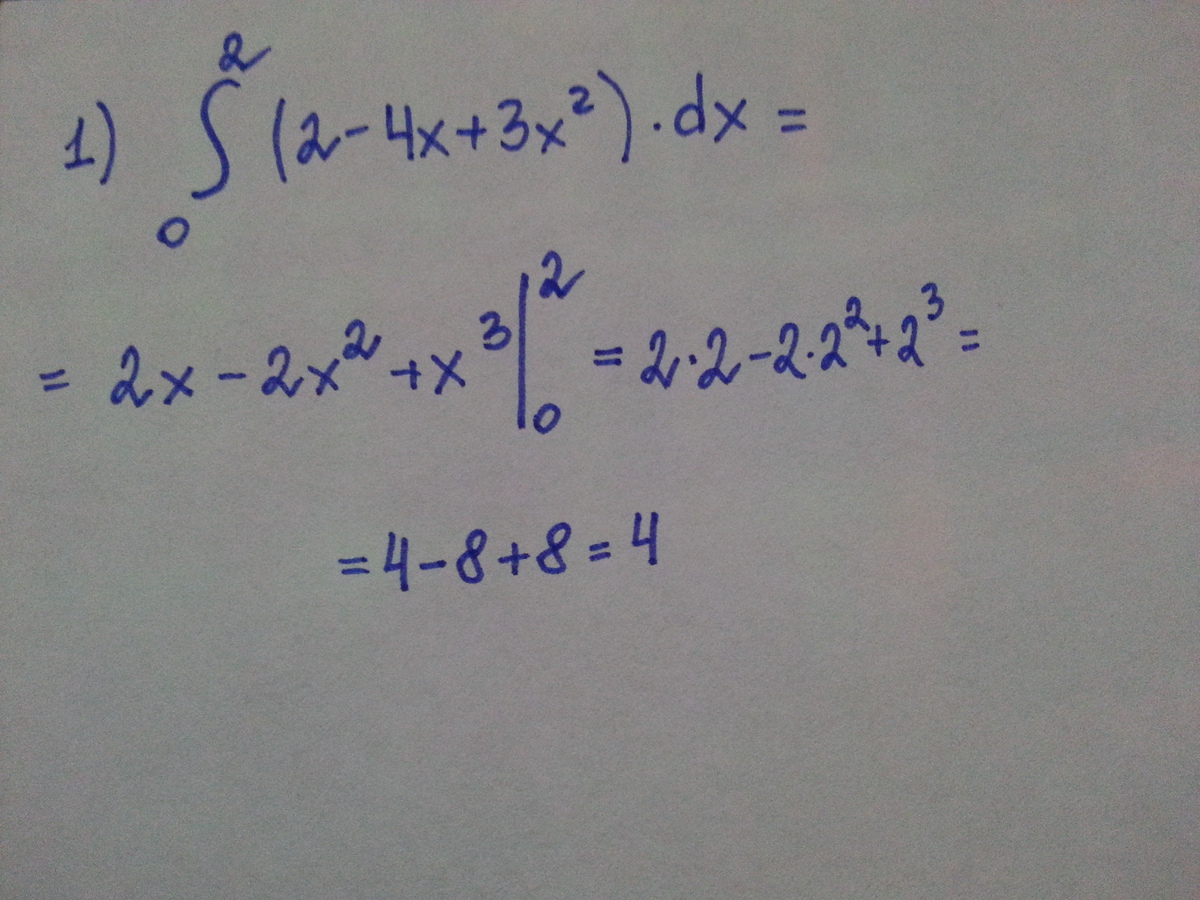 1) ∫₀² (2-4x+3x²)·dx =
= 2x-2x²+x³|₀² = 2·2-2·2²+2³ =
= 4-8+8=4